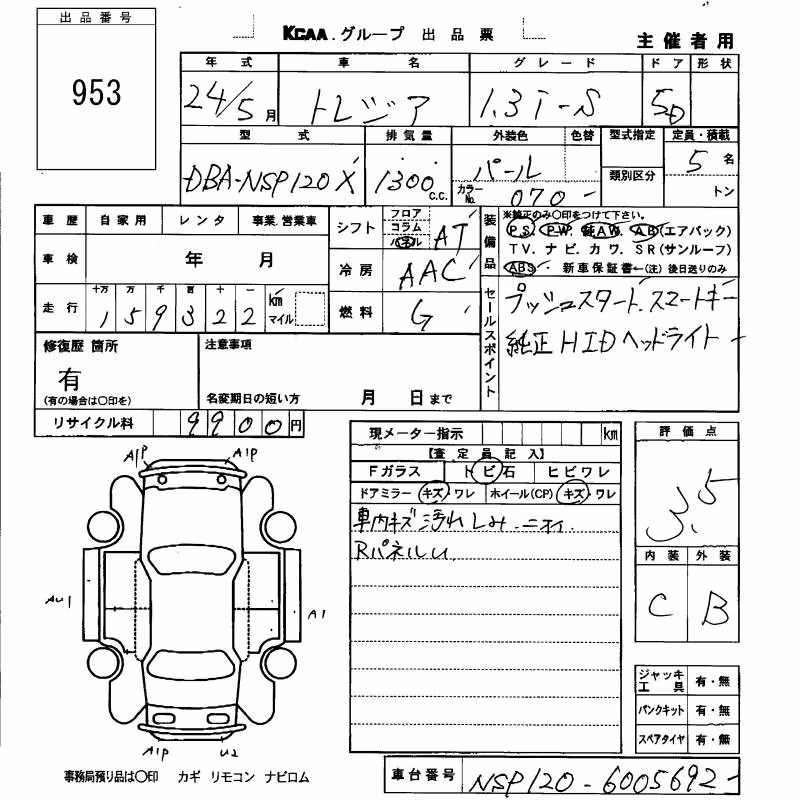 出品番号
953
KCAA.グループ 出品票
主催者用
年式 車名 グレード ドア 形状
24/5月 トレジア 1.3i-S 5D
型式 排気量 外装色 色替 型式指定 定員・積載
DBA-NSP120X 1300c.c. パール 類別区分 5名
カラーNo. 070 トン
車歴 自家用 レンタ 事業.営業車
シフト フロア コラム パネル AT
装備品
※純正のみ〇印をつけて下さい。
P.S. P.W. 純A.W. A.B.(エアバック)
T V. ナ ビ. カ ワ. S R (サンルーフ)
ABS 新車保証書←(注) 後日送りのみ
車検 年 月
冷房 AAC
走行 十万 万 千 百 十 一 km マイル
159322
燃料 G
セールスポイント
プッシュスタート.スマートキー
純正HIDヘッドライト
修復歴 箇所
有
(有の場合は〇印を)
注意事項
名変期日の短い方 月 日まで
リサイクル料 9900円
現メーター指示 km
【査定員記入】
Fガラス トビ石 ヒビワレ
ドアミラー キズ・ワレ ホイール(CP) キズ・ワレ
車内キズ 汚れ しみ.ニオイ
RパネルU
評価点
3.5
内装 外装
C B
A1P A1P
AU1 A1
A1P U2
ジャッキ工具 有・無
パンクキット 有・無
スペアタイヤ 有・無
事務局預り品は〇印 カギ リモコン ナビロム
車台番号 NSP120-6005692